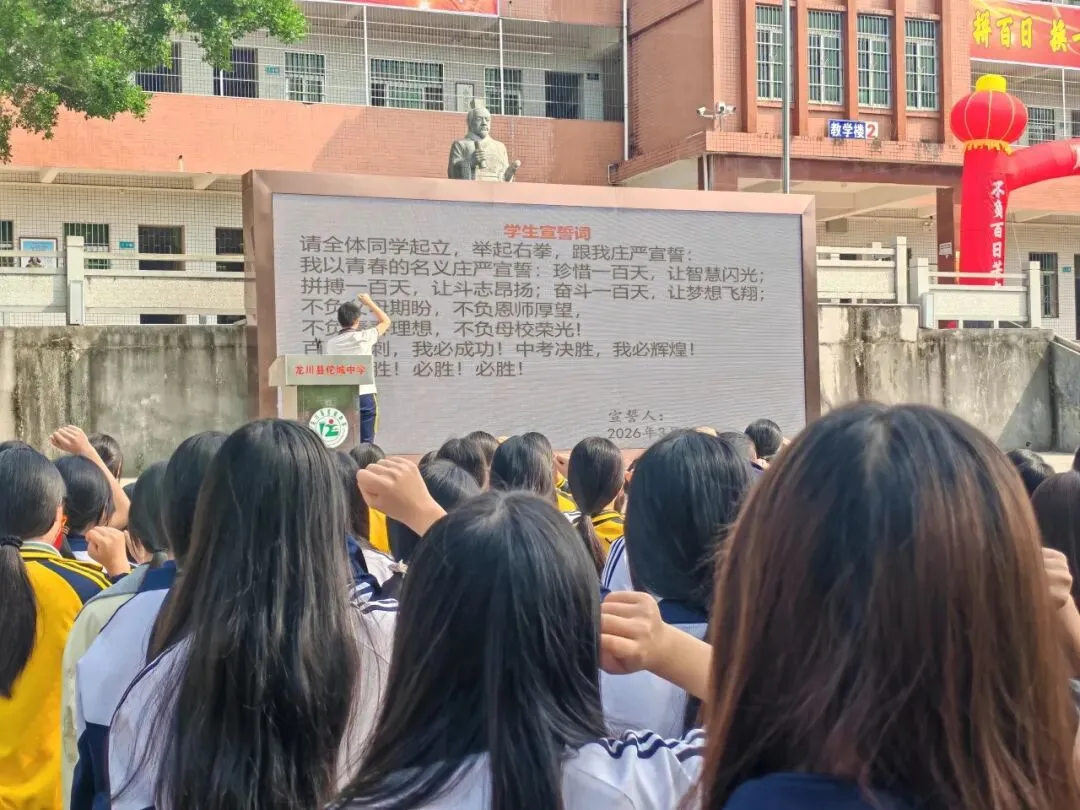 拼百日 换一
教学楼2
不负百日苦
学生宣誓词
请全体同学起立，举起右拳，跟我庄严宣誓：
我以青春的名义庄严宣誓：珍惜一百天，让智慧闪光；
拼搏一百天，让斗志昂扬；奋斗一百天，让梦想飞翔；
不负 母期盼，不负恩师厚望，
不负 理想，不负母校荣光！
百 刺，我必成功！中考决胜，我必辉煌！
胜！必胜！必胜！
宣誓人：
2026年3
龙川县佗城中学